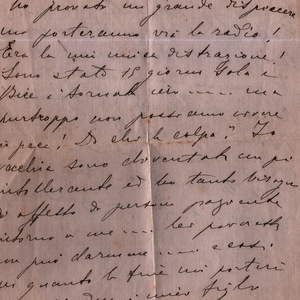 ho provato un grande dispiacere
mi porteranno via la radio!
Era la mia unica distrazione!
Sono stata 15 giorni sola e
Bice è tornata ieri .... ma
purtroppo non possiamo vivere
in pace! Di chi la colpa? Io
vecchia sono diventata un po'
intollerante ed ho tanto bisogno
di affetto di persone
intorno a me ....
non può darmene .... e così
quando la fine mi porterà
mio figlio